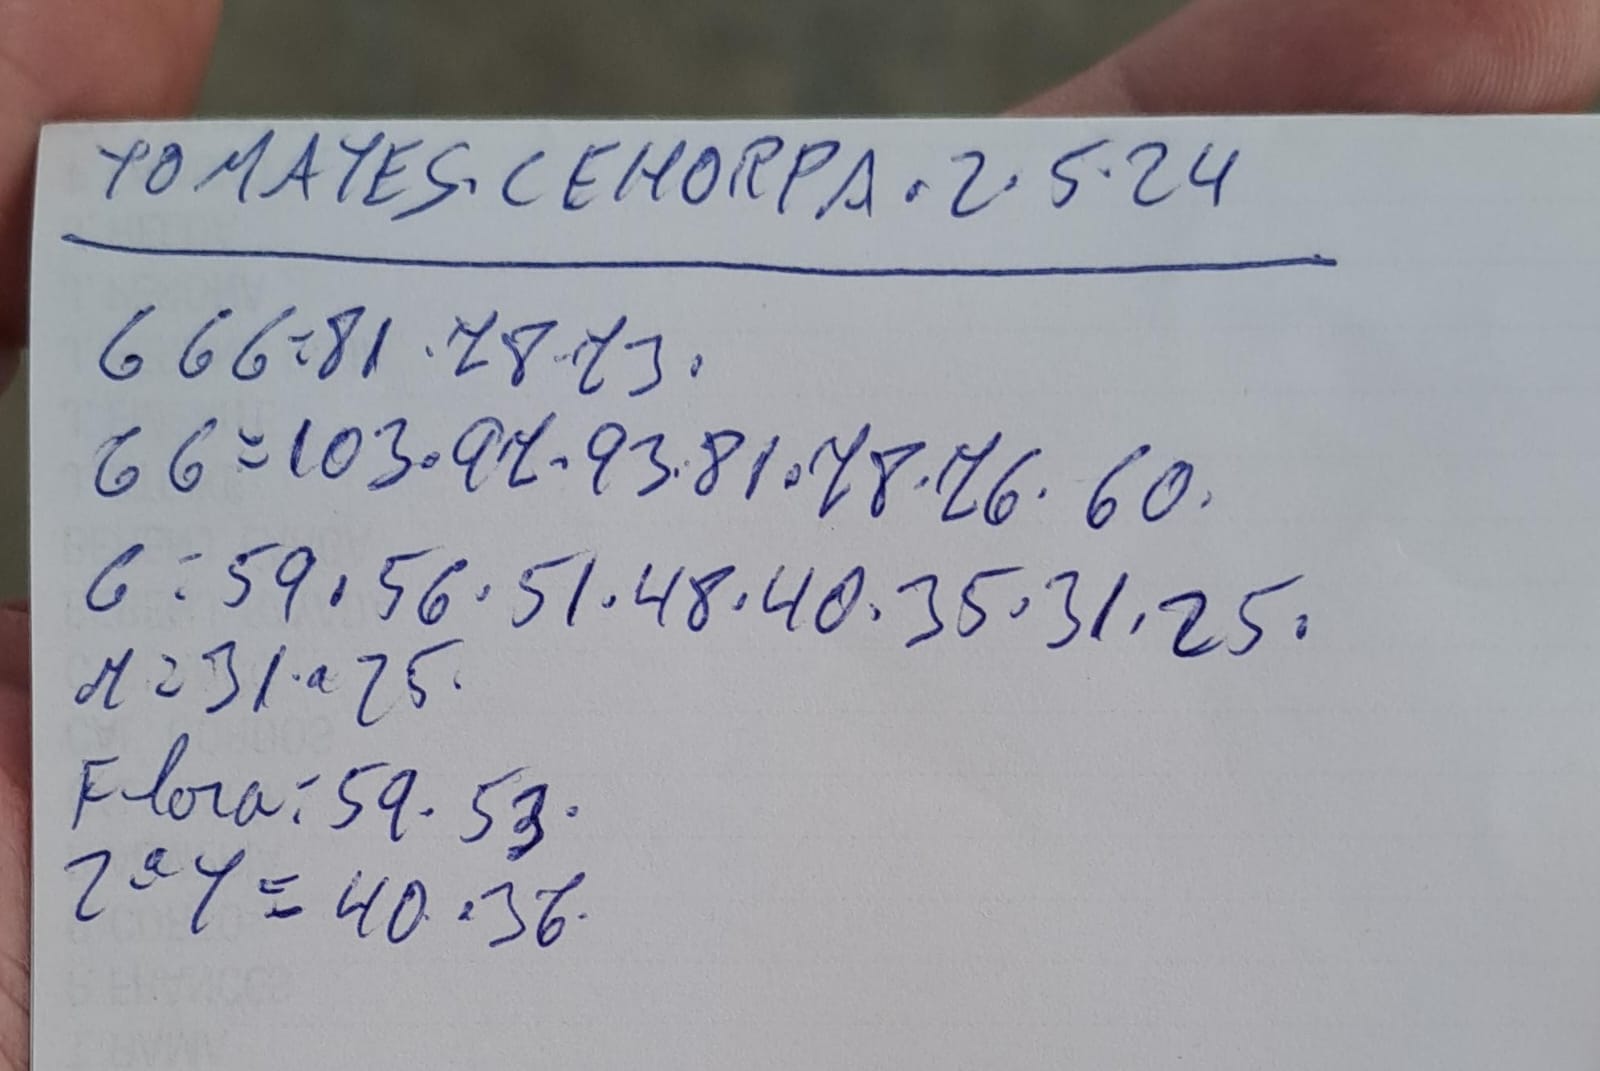 TOMATES.CEHORPA.2.5.24
GGG=81.78.73.
GG=103.97.93.81.78.76.60.
G=59.56.51.48.40.35.31.25.
M=31.a 25.
Flora=59.53.
2ª Y=40.37.